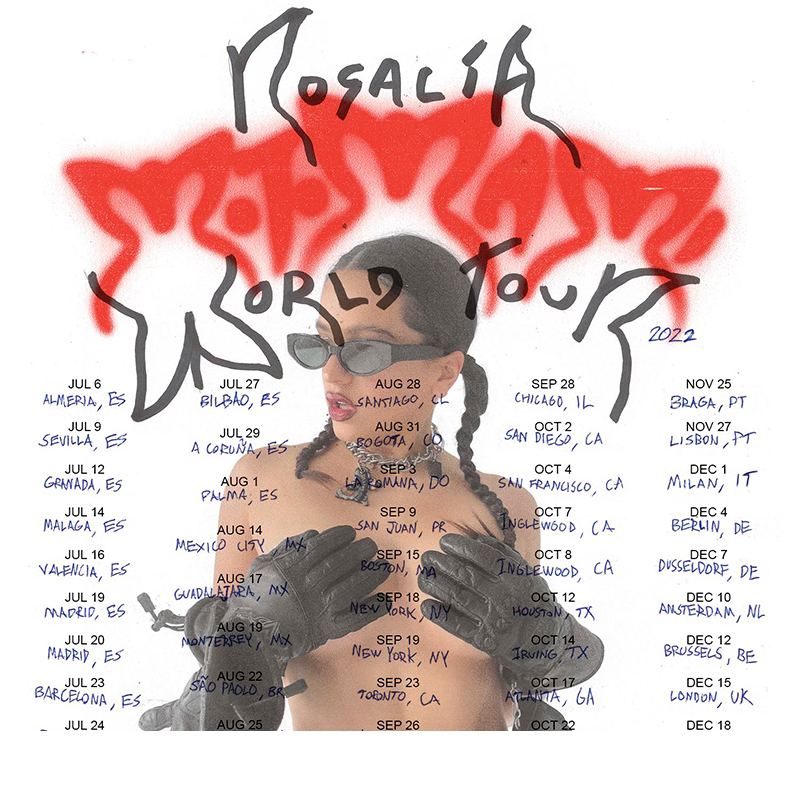 ROSALÍA
MOTOMAMI
WORLD TOUR
2022
JUL 6
ALMERIA, ES
JUL 9
SEVILLA, ES
JUL 12
GRANADA, ES
JUL 14
MALAGA, ES
JUL 16
VALENCIA, ES
JUL 19
MADRID, ES
JUL 20
MADRID, ES
JUL 23
BARCELONA, ES
JUL 24
JUL 27
BILBAO, ES
JUL 29
A CORUÑA, ES
AUG 1
PALMA, ES
AUG 14
MEXICO CITY, MX
AUG 17
GUADALAJARA, MX
AUG 19
MONTERREY, MX
AUG 22
SÃO PAOLO, BR
AUG 25
AUG 28
SANTIAGO, CL
AUG 31
BOGOTA, CO
SEP 3
LA ROMANA, DO
SEP 9
SAN JUAN, PR
SEP 15
BOSTON, MA
SEP 18
NEW YORK, NY
SEP 19
NEW YORK, NY
SEP 23
TORONTO, CA
SEP 26
SEP 28
CHICAGO, IL
OCT 2
SAN DIEGO, CA
OCT 4
SAN FRANCISCO, CA
OCT 7
INGLEWOOD, CA
OCT 8
INGLEWOOD, CA
OCT 12
HOUSTON, TX
OCT 14
IRVING, TX
OCT 17
ATLANTA, GA
OCT 22
NOV 25
BRAGA, PT
NOV 27
LISBON, PT
DEC 1
MILAN, IT
DEC 4
BERLIN, DE
DEC 7
DUSSELDORF, DE
DEC 10
AMSTERDAM, NL
DEC 12
BRUSSELS, BE
DEC 15
LONDON, UK
DEC 18